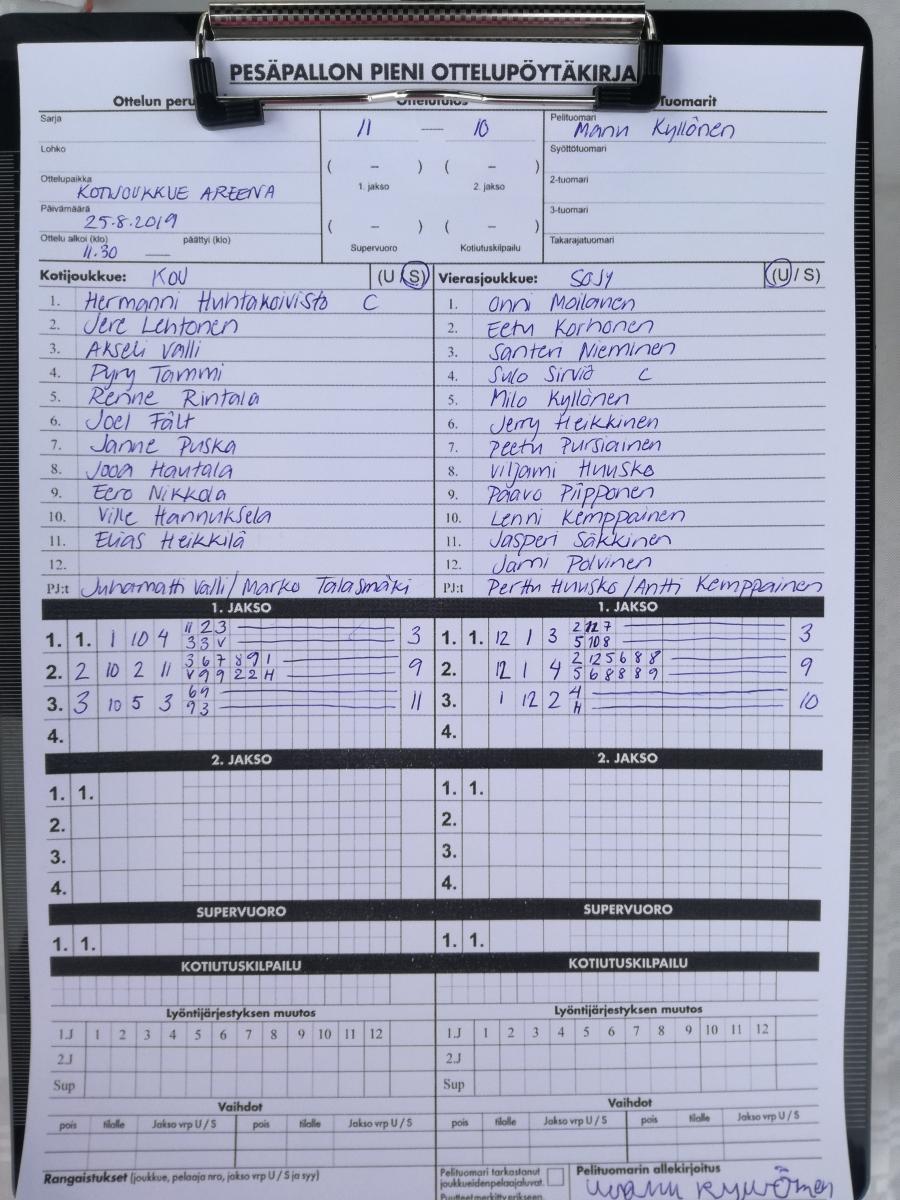 PESÄPALLON PIENI OTTELUPÖYTÄKIRJA
Ottelun Tuomarit
Sarja
Lohko
Ottelupaikka
KOTIJOUKKUE AREENA
Päivämäärä
25.8.2019
Ottelu alkoi (klo) päättyi (klo)
11.30 —
11 — 10
( – ) ( – )
1. jakso 2. jakso
( – ) ( – )
Supervuoro Kotiutuskilpailu
Pelituomari
Manu Kyllönen
Syöttötuomari
2-tuomari
3-tuomari
Takarajatuomari
Kotijoukkue: KOU (U / S)
1. Hermanni Huhtakoivisto C
2. Jere Lehtonen
3. Akseli Valli
4. Pyry Tammi
5. Renne Rintala
6. Joel Fält
7. Janne Puska
8. Jooa Hautala
9. Eero Nikkola
10. Ville Hannuksela
11. Elias Heikkilä
12.
PJ:t Juhamatti Valli/Marko Talasmäki
Vierasjoukkue: SOJY (U / S)
1. Onni Moilanen
2. Eetu Korhonen
3. Santeri Nieminen
4. Sulo Sirviö C
5. Milo Kyllönen
6. Jerry Heikkinen
7. Peetu Pursiainen
8. Viljami Huusko
9. Paavo Piipponen
10. Lenni Kemppainen
11. Jasperi Säkkinen
12. Jami Polvinen
PJ:t Perttu Huusko/Antti Kemppainen
1. JAKSO
1. 1. 1 10 4 11 2 3 3
3 3 V
2. 2 10 2 11 3 6 7 8 9 1 9
V 9 9 2 2 H
3. 3 10 5 3 6 9 11
9 3
4.
1. JAKSO
1. 1. 12 1 3 2 12 7 3
5 10 8
2. 12 1 4 2 12 5 6 8 8 9
5 6 8 8 8 9
3. 1 12 2 4 10
H
4.
2. JAKSO
1. 1.
2.
3.
4.
2. JAKSO
1. 1.
2.
3.
4.
SUPERVUORO
1. 1.
SUPERVUORO
1. 1.
KOTIUTUSKILPAILU
KOTIUTUSKILPAILU
Lyöntijärjestyksen muutos
1.J 1 2 3 4 5 6 7 8 9 10 11 12
2.J
Sup
Lyöntijärjestyksen muutos
1.J 1 2 3 4 5 6 7 8 9 10 11 12
2.J
Sup
Vaihdot
pois tilalle Jakso vrp U / S pois tilalle Jakso vrp U / S
Vaihdot
pois tilalle Jakso vrp U / S pois tilalle Jakso vrp U / S
Rangaistukset (joukkue, pelaaja nro, jakso vrp U / S ja syy)
Pelituomari tarkastanut
joukkueiden pelaajaluvat.
Puutteet merkitty erikseen.
Pelituomarin allekirjoitus
Manu Kyllönen